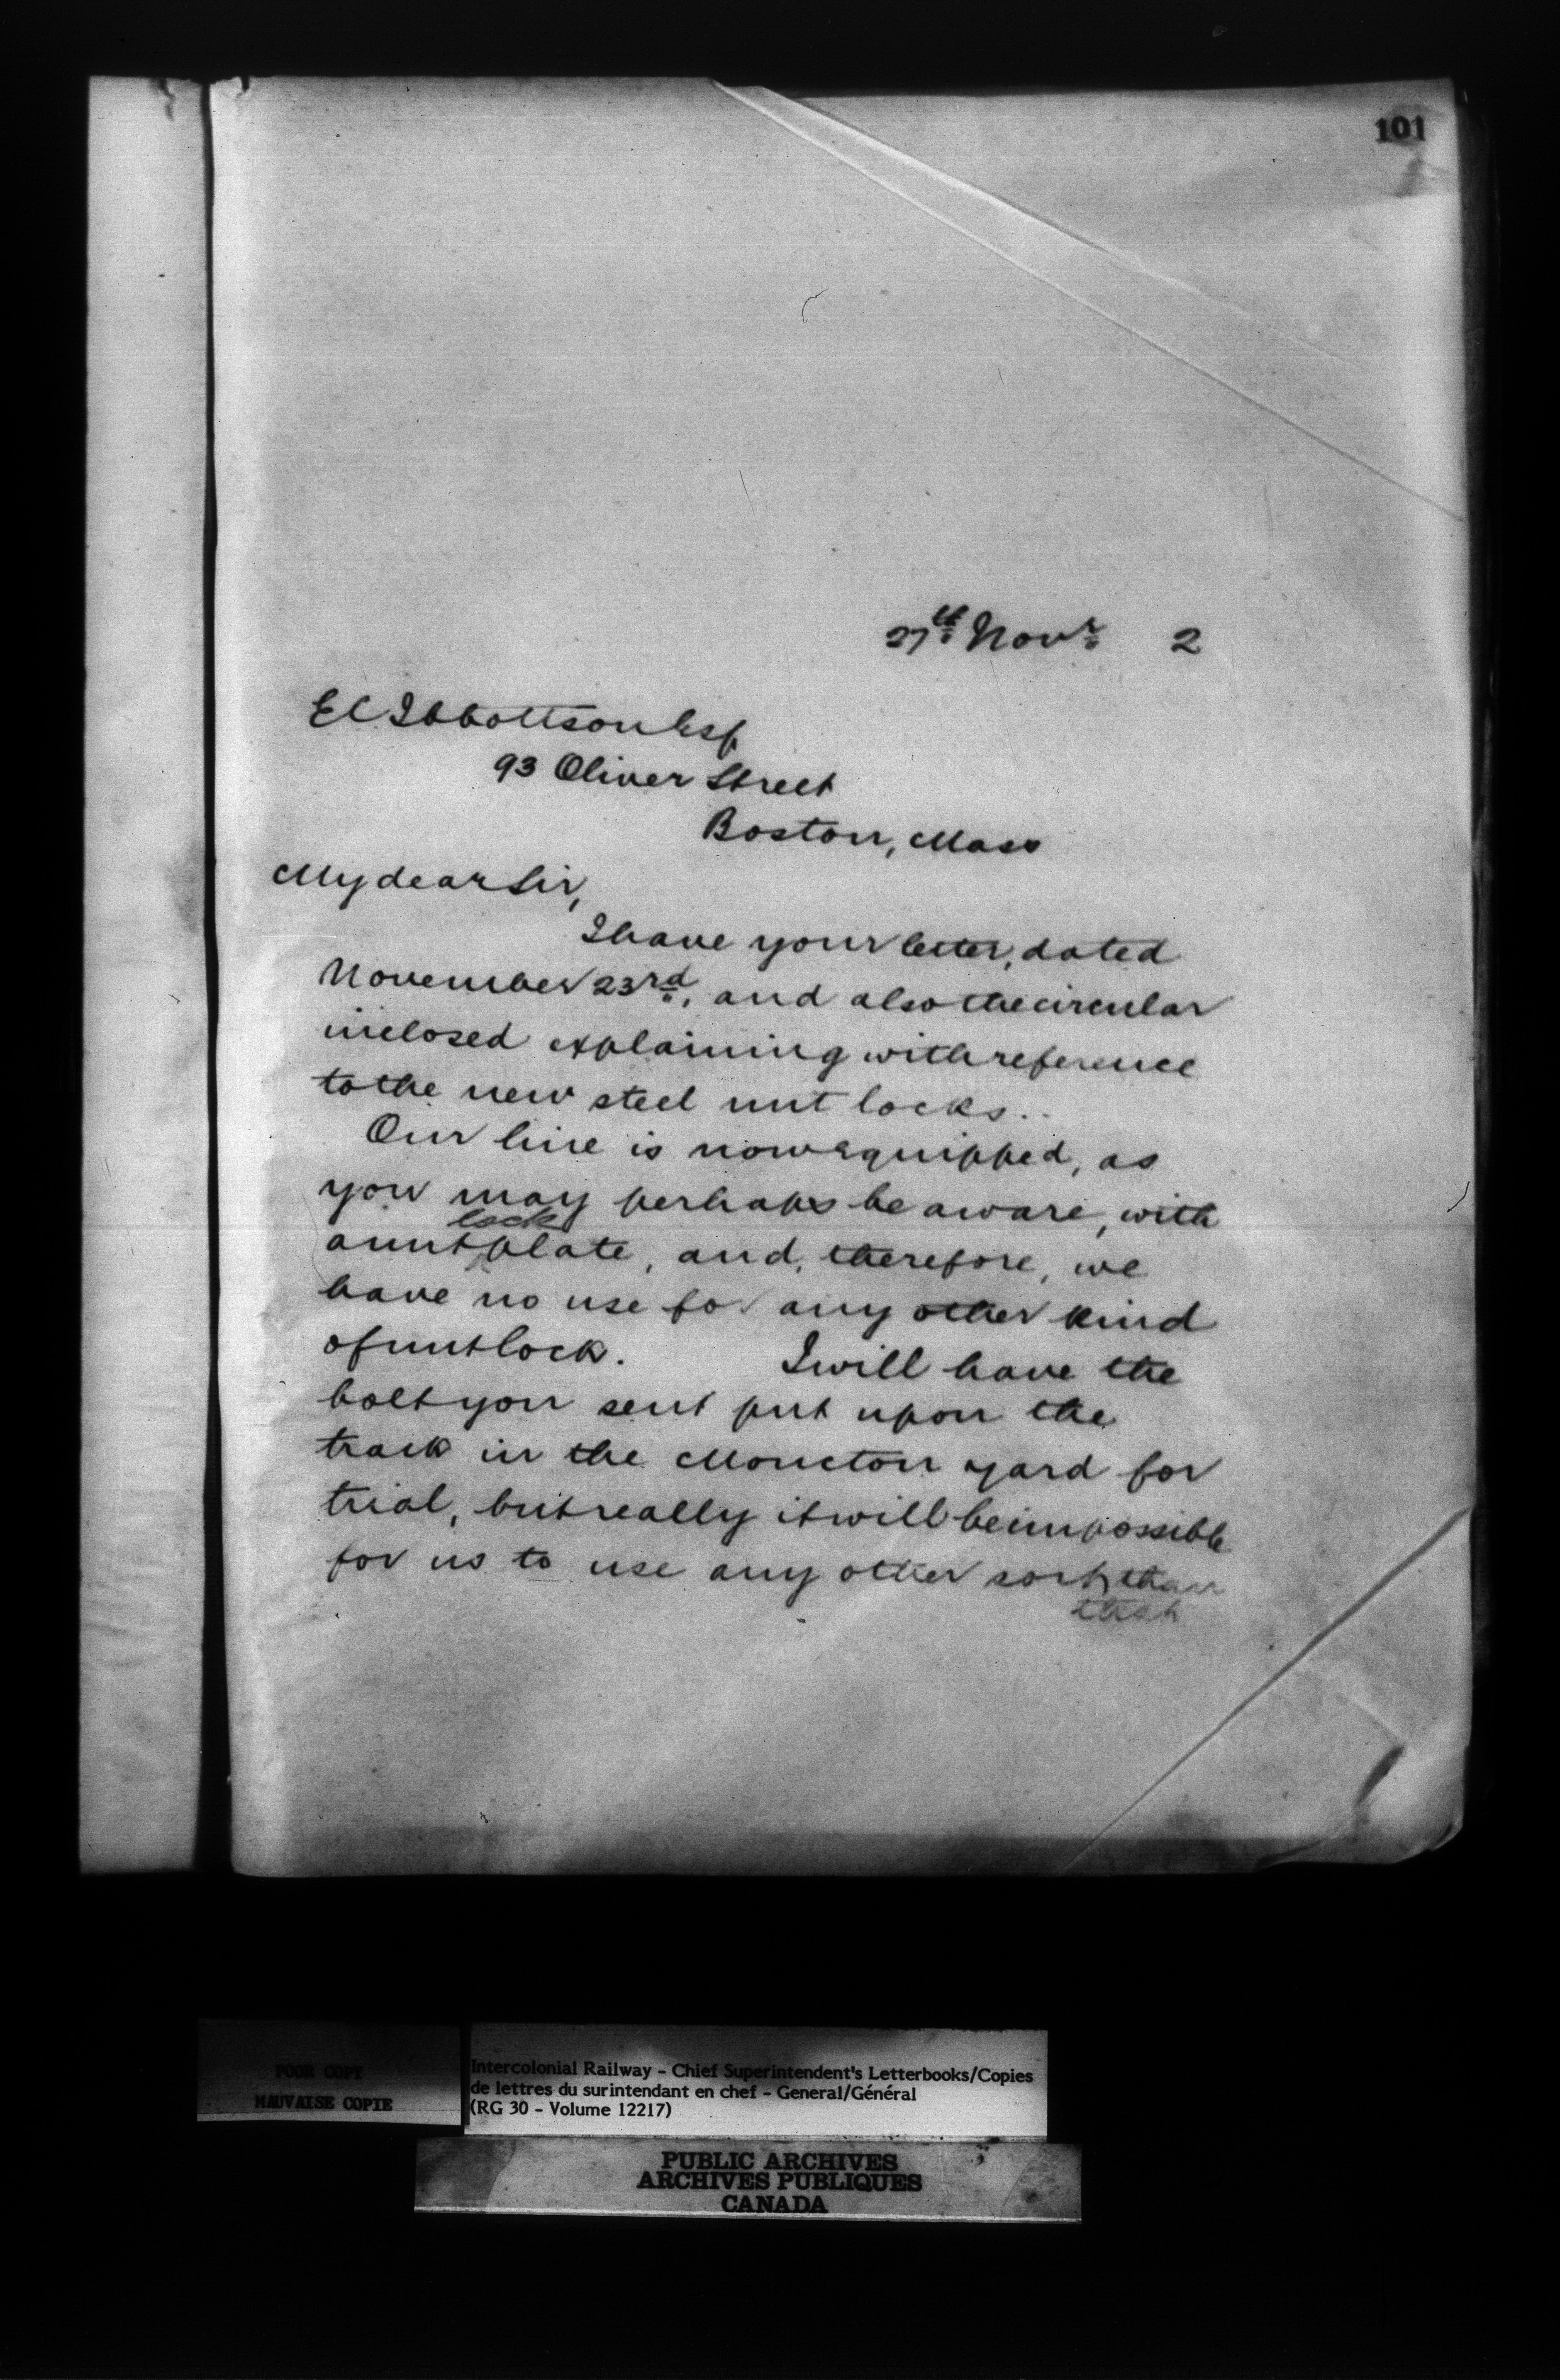 101
27th Novr 2
EC Ibbottson Esq
93 Oliver Street
Boston, Mass
My dear Sir,
I have your letter, dated
November 23rd, and also the circular
inclosed explaining with reference
to the new steel nut locks..
Our line is now equipped, as
you may perhaps be aware, with
lock
a nut plate, and, therefore, we
have no use for any other kind
of nut lock. I will have the
bolt you sent put upon the
track in the Moncton yard for
trial, but really it will be impossible
for us to use any other sort, than
that
POOR COPY
MAUVAISE COPIE
Intercolonial Railway - Chief Superintendent's Letterbooks/Copies
de lettres du surintendant en chef - General/Général
(RG 30 - Volume 12217)
PUBLIC ARCHIVES
ARCHIVES PUBLIQUES
CANADA